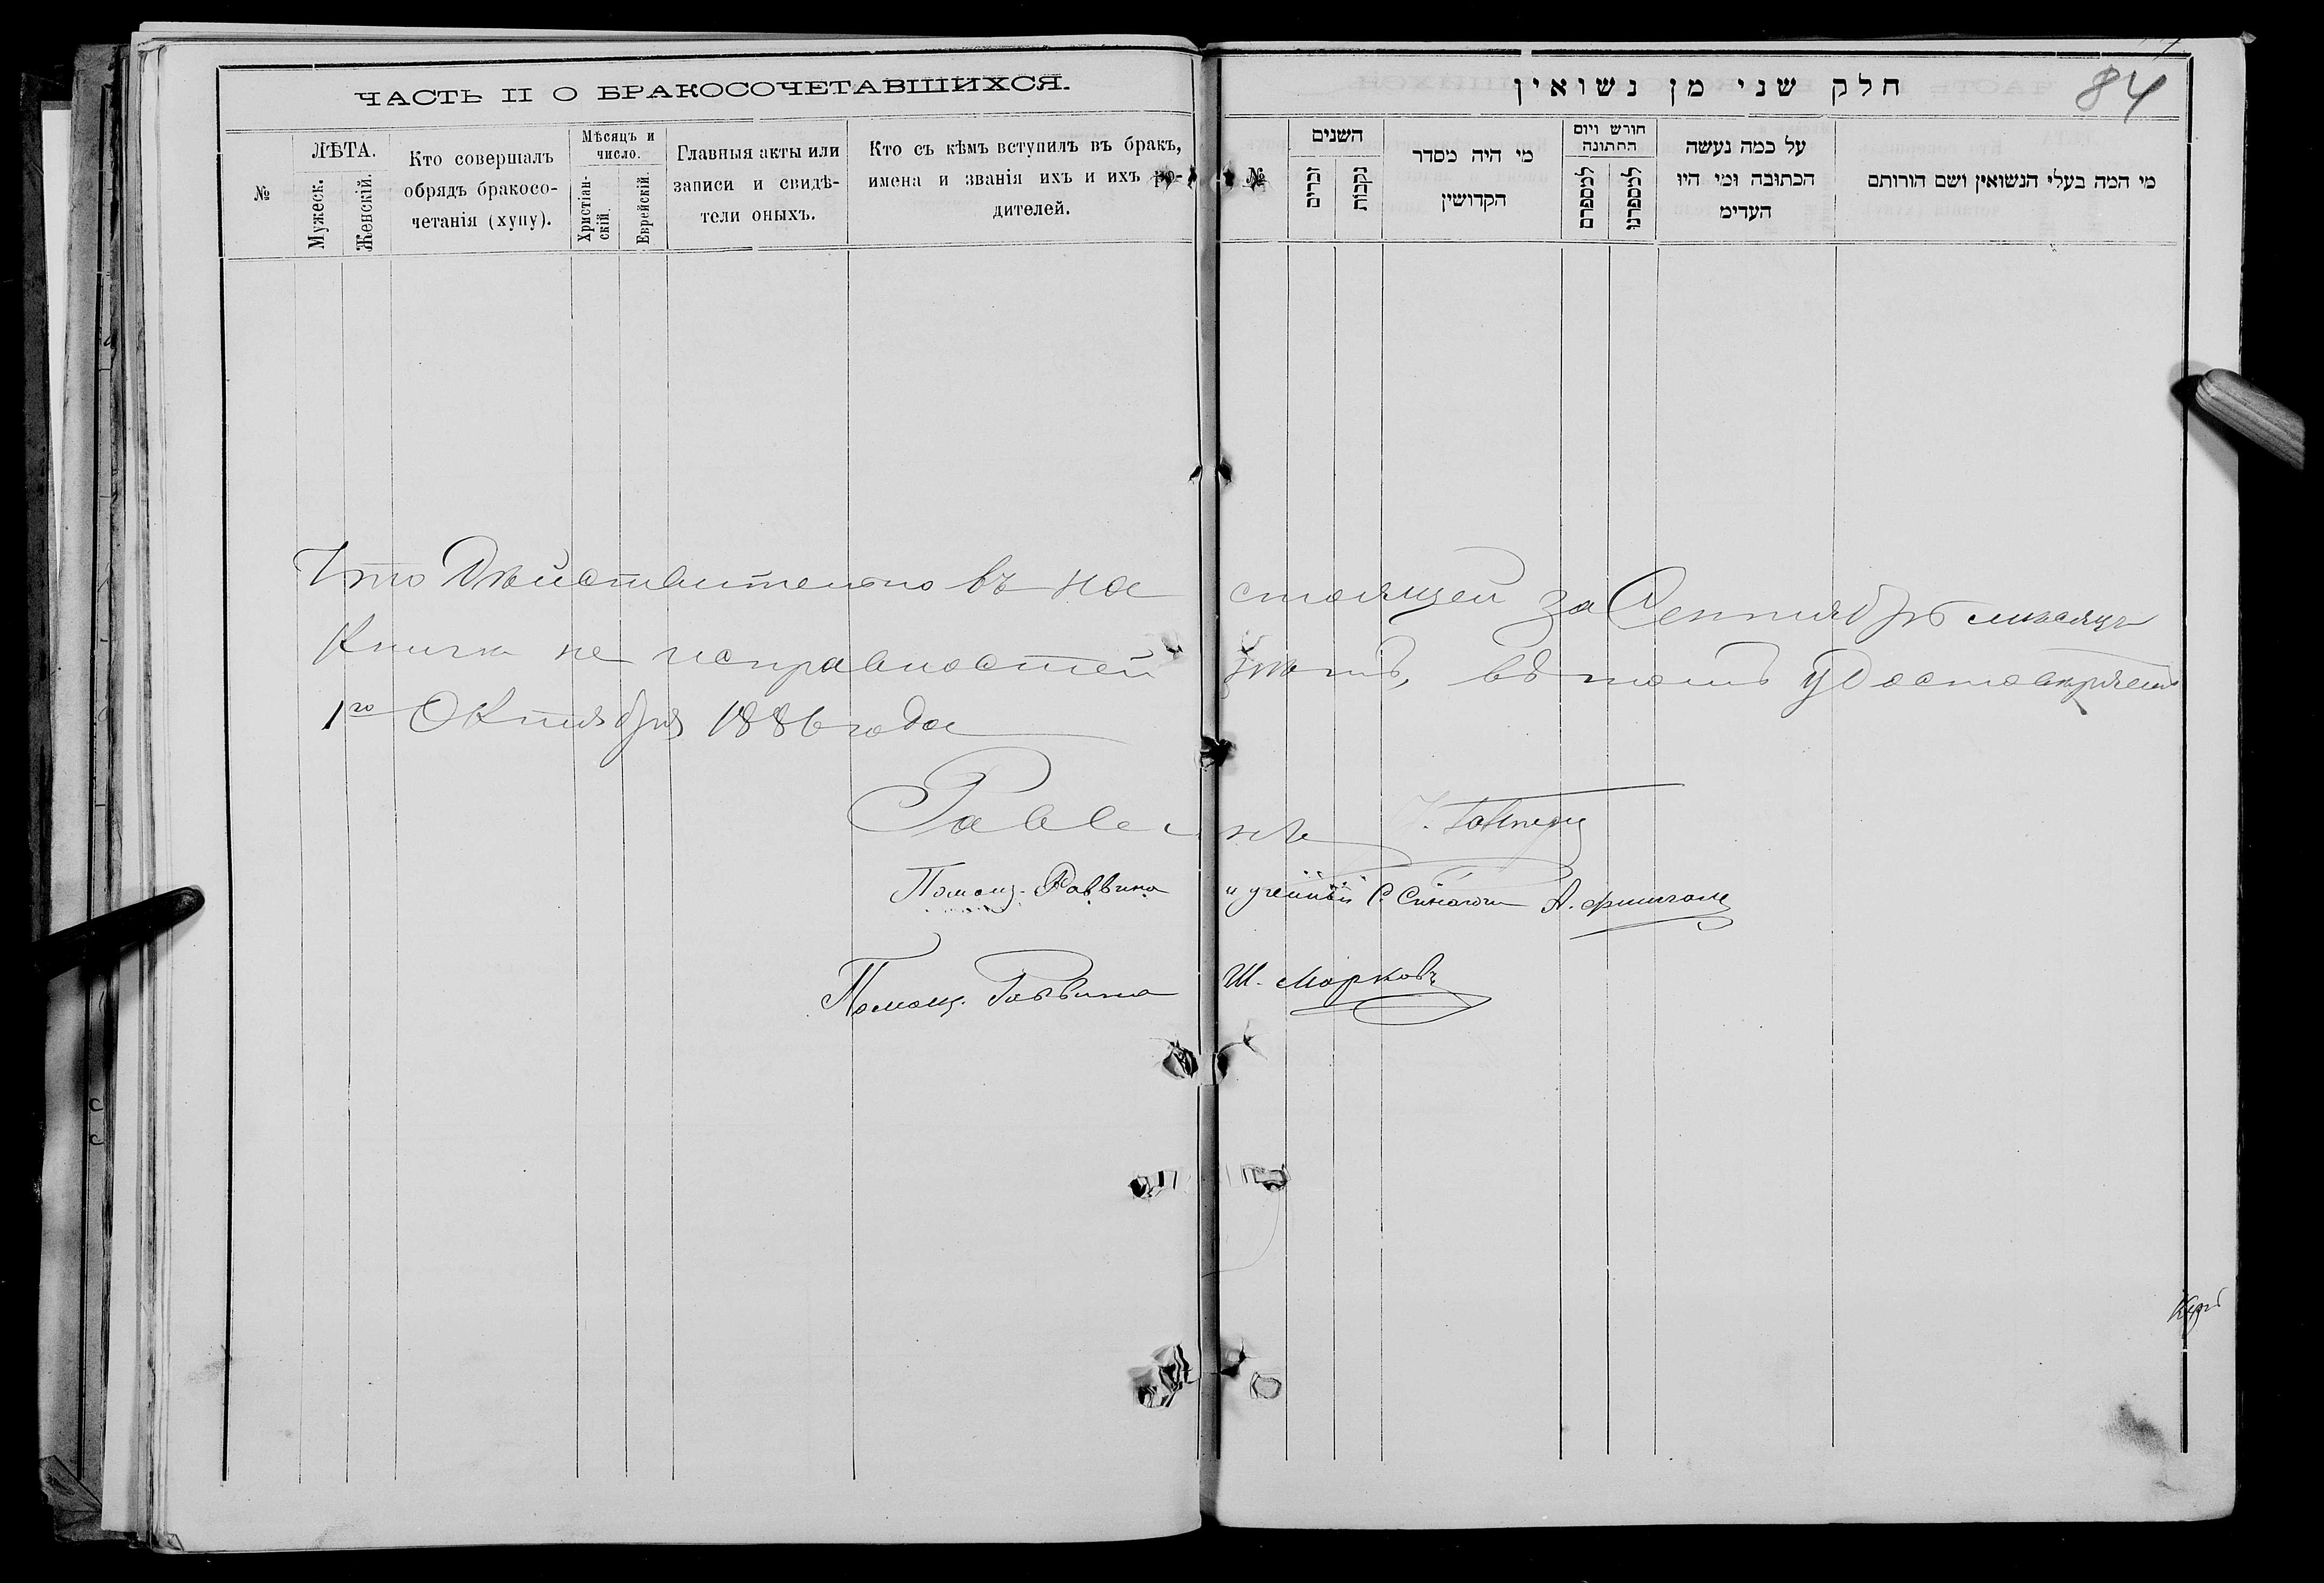 ЧАСТЬ II О БРАКОСОЧЕТАВШИХСЯ.
№
ЛѢТА.
Мужеск.
Женскій.
Кто совершалъ
обрядъ бракосо-
четанія (хупу).
Мѣсяцъ и
число.
Христіан-
скій.
Еврейскій.
Главныя акты или
записи и свидѣ-
тели оныхъ.
Кто съ кѣмъ вступилъ въ бракъ,
имена и званія ихъ и ихъ ро-
дителей.
חלק שני מן נשואין
84
№
השנים
זכרים
נקבות
מי היה מסדר
הקדושין
חורש ויום
החתונה
למספרם
למספרנו
על כמה נעשה
הכתובה ומי היו
העדימ
מי המה בעלי הנשואין ושם הורותם
Что Дѣйствительно въ на стоящей за Сентябрь мѣсяцъ
Книги не исправностей нѣтъ, въ томъ удостовѣряемъ
1го Октября 1886 года
Раввинъ
Помощ. Раввина и ученый С. Синагоги А.
Помощ. Раввина Ш. Марковъ